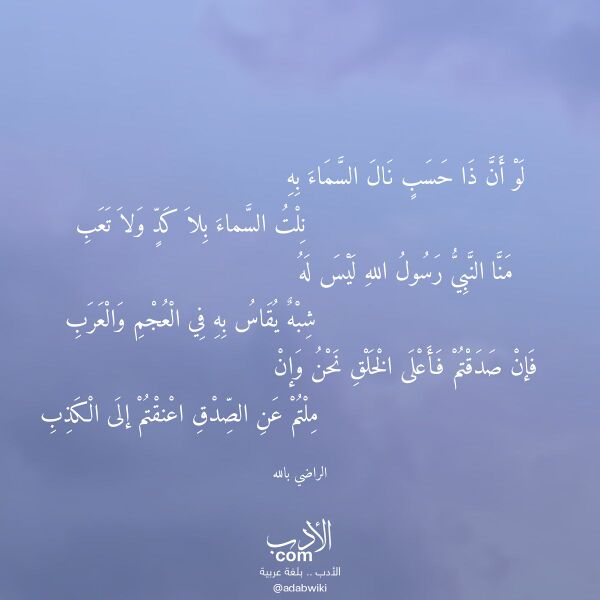 لَوْ أَنَّ ذَا حَسَبٍ نَالَ السَّمَاءَ بِهِ
نِلْتُ السَّماءَ بِلاَ كَدٍّ وَلاَ تَعَبِ
مَنَّا النَّبِيُّ رَسُولُ اللهِ لَيْسَ لَهُ
شِبْهٌ يُقَاسُ بِهِ فِي الْعُجْمِ وَالْعَرَبِ
فَإنْ صَدَقْتُمْ فَأَعْلَى الْخَلْقِ نَحْنُ وَإنْ
مِلْتُمْ عَنِ الصِّدْقِ اعْنقْتُمْ إلَى الْكَذِبِ
الراضي بالله
الأدب
com
الأدب .. بلغة عربية
@adabwiki